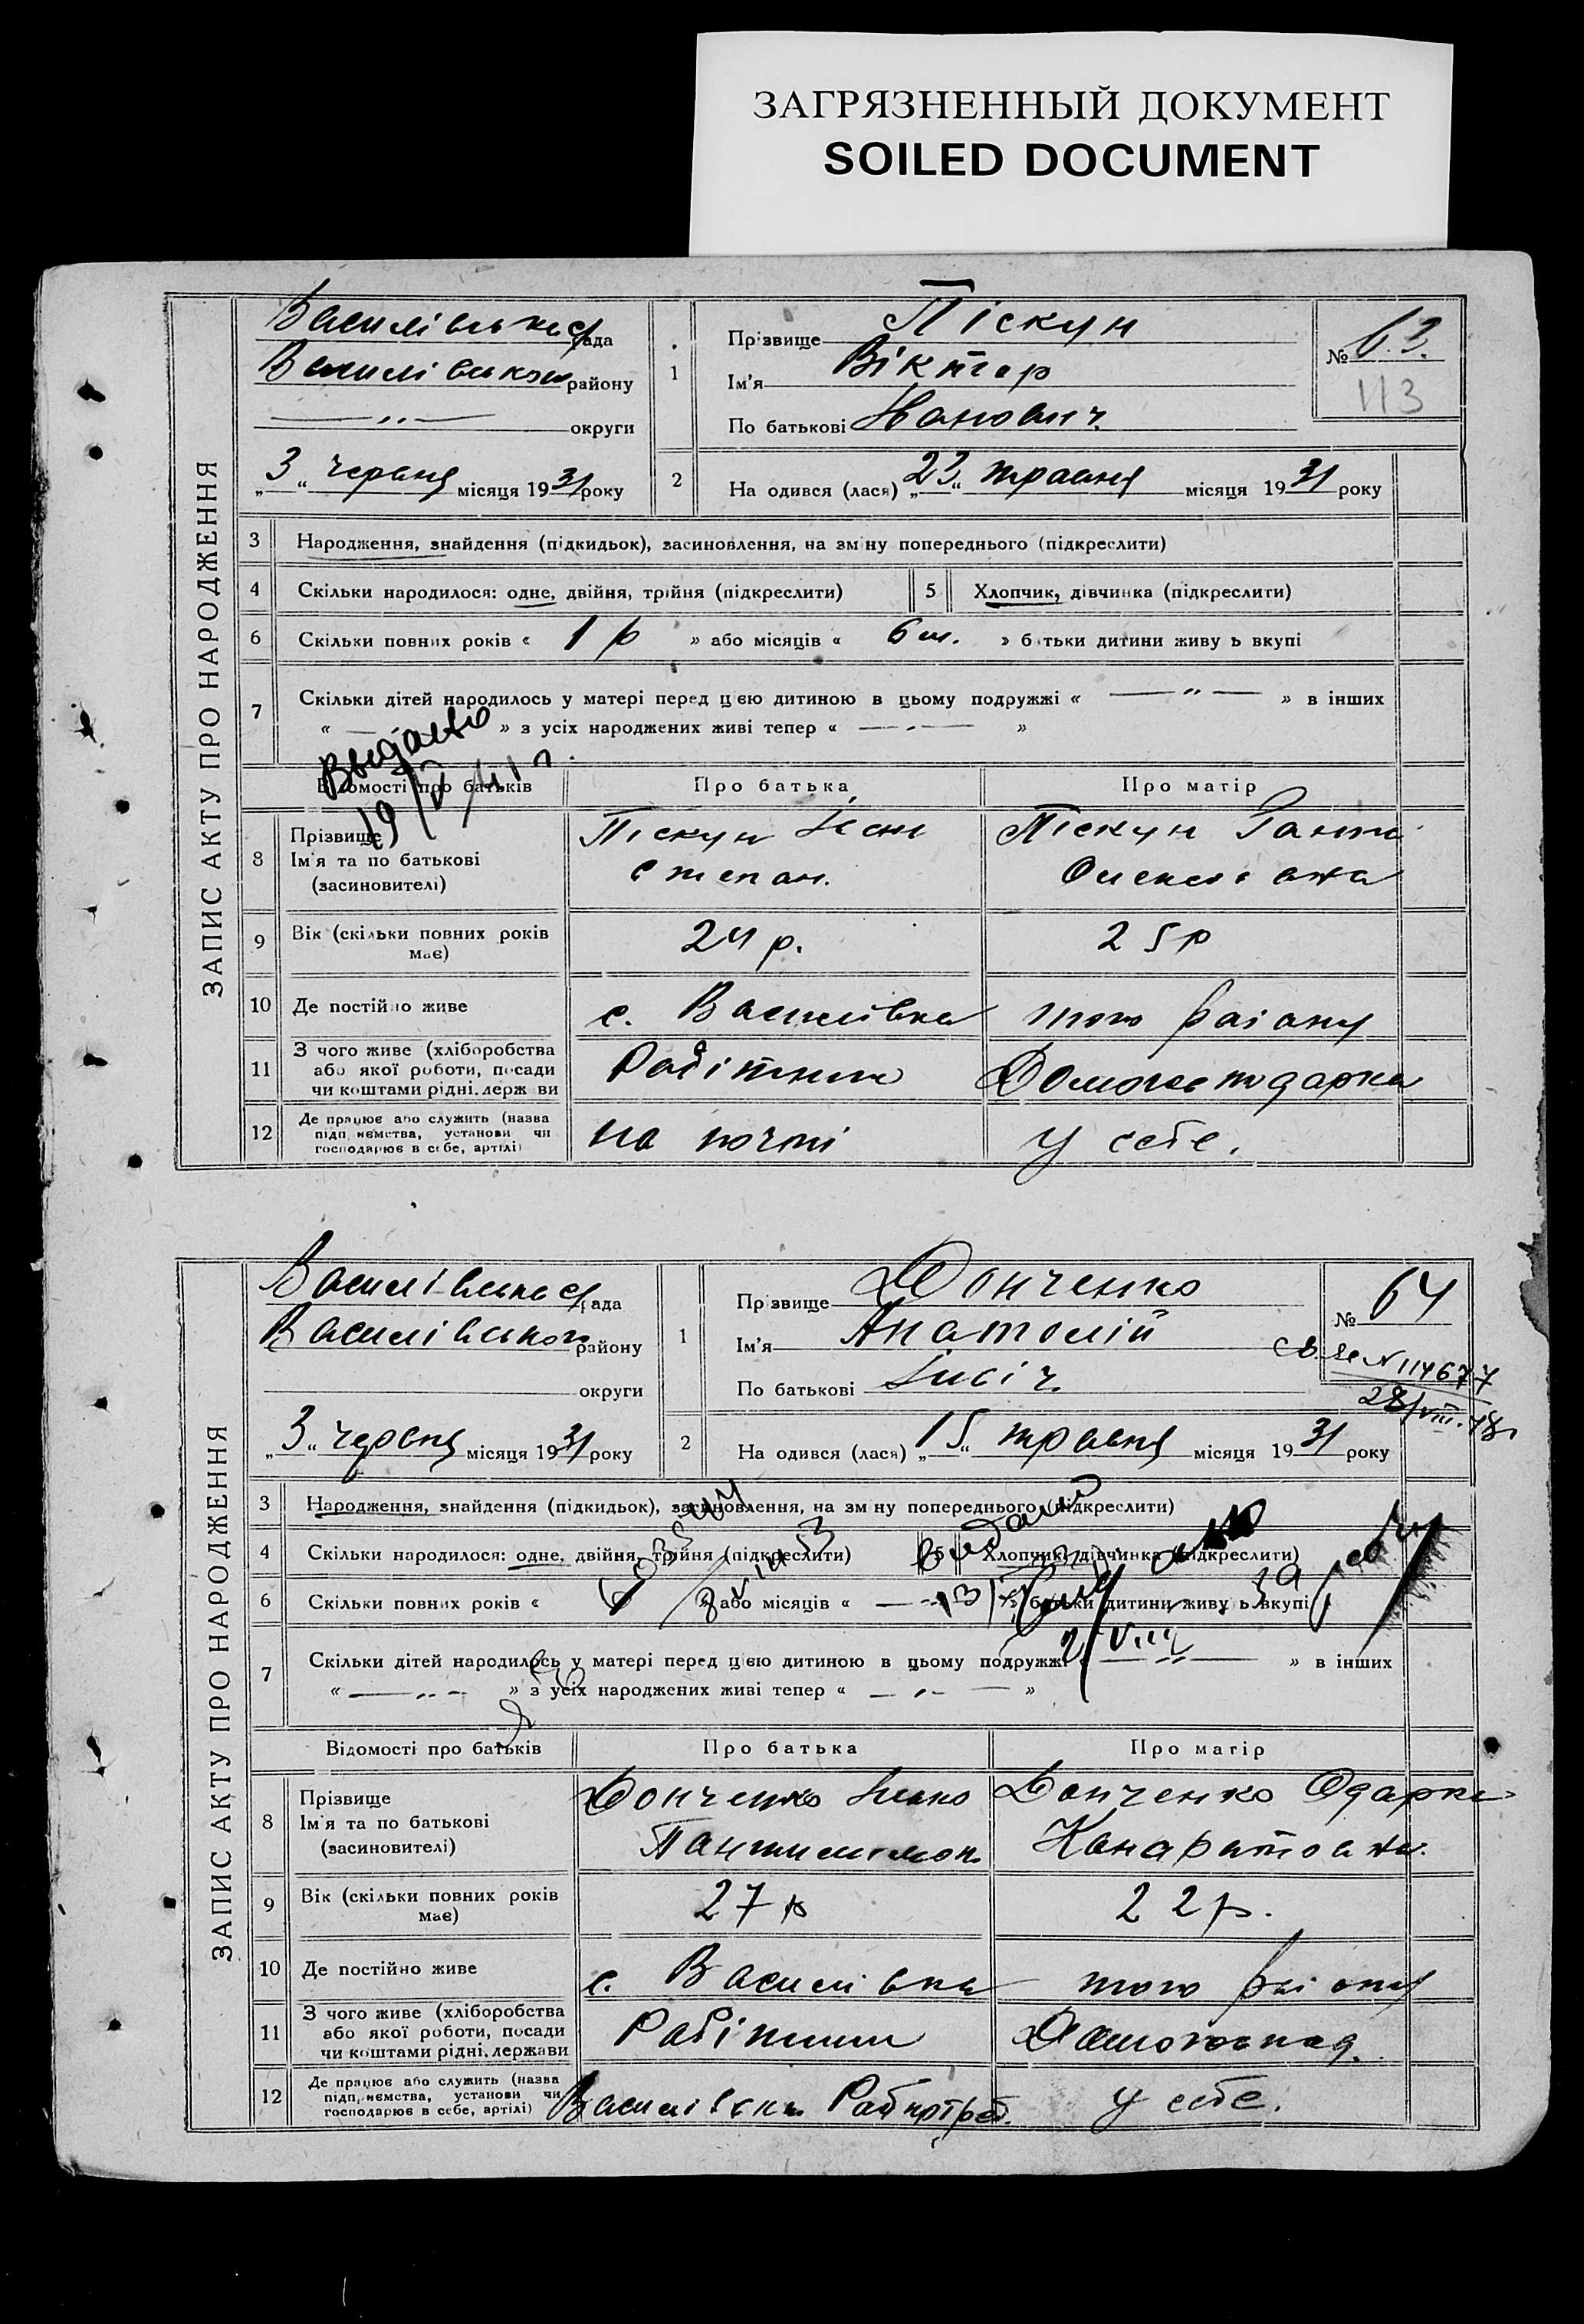 ЗАГРЯЗНЕННЫЙ ДОКУМЕНТ
SOILED DOCUMENT
ЗАПИС АКТУ ПРО НАРОДЖЕННЯ
Василівська рада
Василівськ району
—〃— округи
„3“ червня місяця 1931 року
1
Прізвище Піскун
Ім'я Віктор
По батькові Іванович.
№ 63.
113
2
На одився (лася) „23“ травня місяця 1931 року
3 Народження, знайдення (підкидьок), засиновлення, на зм ну попереднього (підкреслити)
4 Скільки народилося: одне, двійня, трійня (підкреслити)
5 Хлопчик, дівчинка (підкреслити)
6 Скільки повних років « 1 р » або місяців « 6 м. » б тьки дитини живу ь вкупі
7 Скільки дітей народилось у матері перед цією дитиною в цьому подружжі « —〃— » в інших
« — » з усіх народжених живі тепер « —〃— »
Выдано
19/V 41 г.
Відомості про батьків
Про батька
Про матір
8 Прізвище
Ім'я та по батькові
(засиновителі)
Піскун Іван
Степан.
Піскун Ганна
9 Вік (скільки повних років має)
24 р.
25 р
10 Де постійно живе
с. Василівка
того району
11 З чого живе (хліборобства
або якої роботи, посади
чи коштами рідні, держ ви
Робітник
Домогосподарка
12 Де працює або служить (назва
підп иємства, установи чи
господарює в себе, артілі)
на почті
у себе.
ЗАПИС АКТУ ПРО НАРОДЖЕННЯ
Василівська рада
Василівського району
округи
„3“ червня місяця 1931 року
1
Пр звище Донченко
Ім'я Анатолій
По батькові
№ 64
св. N 114677
28/VIII.
2
На одився (лася) „15“ травня місяця 1931 року
3 Народження, знайдення (підкидьок), засиновлення, на зм ну попереднього (підкреслити)
4 Скільки народилося: одне, двійня, трійня (підкреслити)
5 Хлопчик, дівчинка (підкреслити)
6 Скільки повних років « » або місяців « — » батьки дитини живу ь вкупі
7 Скільки дітей народилось у матері перед цією дитиною в цьому подружжі « —〃— » в інших
« —〃— » з усіх народжених живі тепер « —〃— »
Відомості про батьків
Про батька
Про матір
8 Прізвище
Ім'я та по батькові
(засиновителі)
Донченко
Донченко Одарка
9 Вік (скільки повних років має)
27 р
22 р.
10 Де постійно живе
с. Василівка
того району
11 З чого живе (хліборобства
або якої роботи, посади
чи коштами рідні, держави
Робітник
Домогоспод.
12 Де працює або служить (назва
підп иємства, установи чи
господарює в себе, артілі)
у себе.